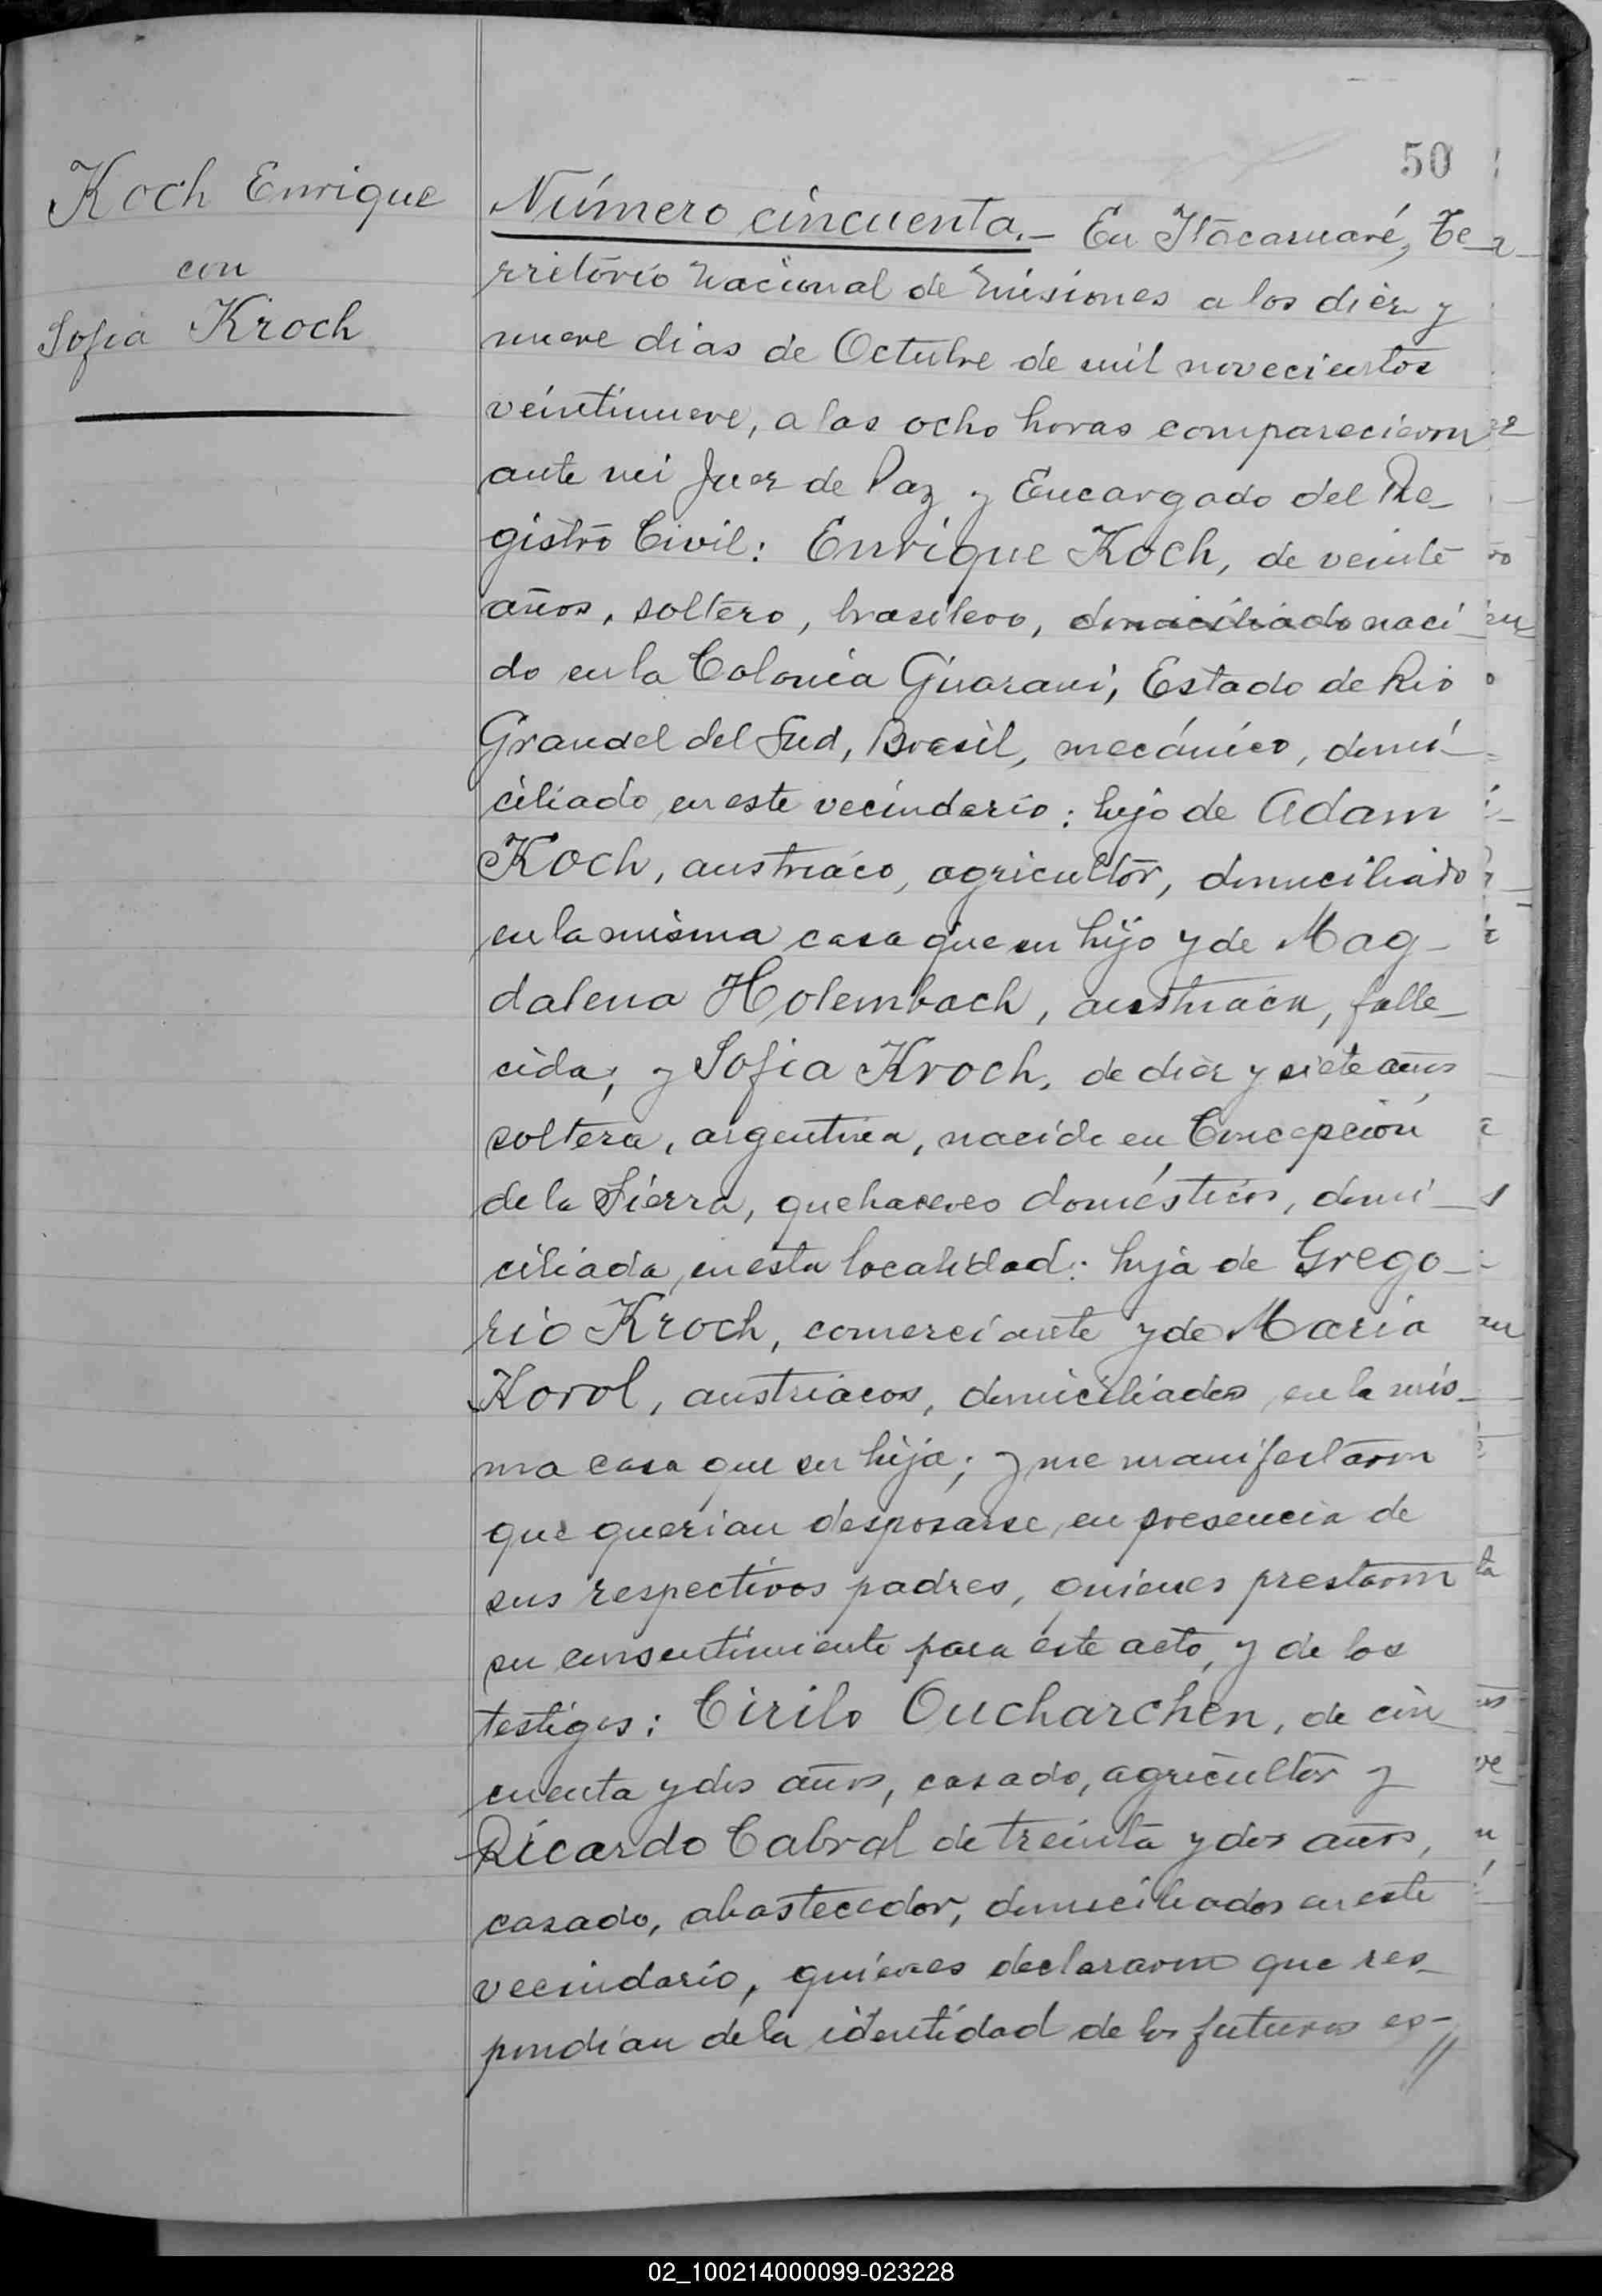 50
Koch Enrique
con
Sofia Kroch
Número cincuenta.- En Itacaruaré, Te-
rritorio Nacional de Misiones a los diez y
nueve dias de Octubre de mil novecientos
veintinueve, a las ocho horas comparecieron
ante mi Juez de Paz y Encargado del Re-
gistro Civil: Enrique Koch, de veinte
años, soltero, brasilero, domiciliado naci-
do en la Colonia Guarani, Estado de Rio
Grandel del Sud, Brasil, mecánico, domi-
ciliado en este vecindario: hijo de Adam
Koch, austriaco, agricultor, domiciliado
en la misma casa que su hijo y de Mag-
dalena Holembach, austriaca, falle-
cida; y Sofia Kroch, de diez y siete años
soltera, argentina, nacida en Concepción
de la Sierra, quehaceres domésticos, domi-
ciliada en esta localidad: hija de Grego-
rio Kroch, comerciante y de Maria
Korol, austriacos, domiciliados en la mis-
ma casa que su hija; y me manifestaron
que querian desposarse en presencia de
sus respectivos padres, quienes prestaron
su consentimiento para este acto, y de los
testigos: Cirilo Oucharchen, de cin
cuenta y dos años, casado, agricultor y
Ricardo Cabral de treinta y dos años,
casado, abastecedor, domiciliados en este
vecindario, quienes declararon que res-
pondian de la identidad de los futuros es-//
02_100214000099-023228